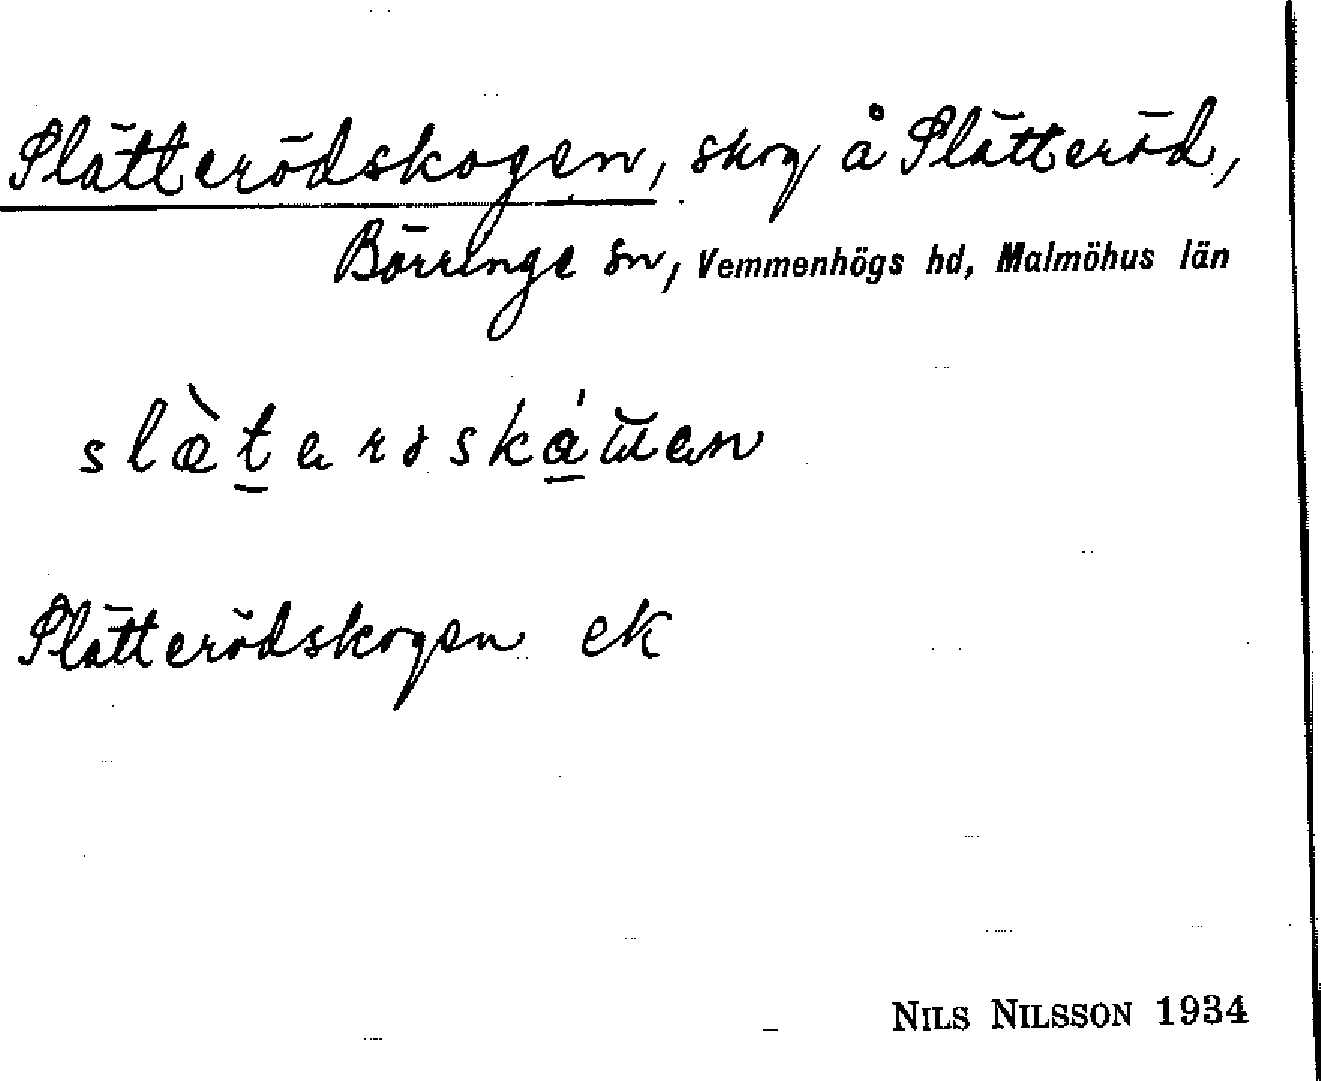 Slätterödskogen, skog å Slätteröd,
Börringe sn, Vemmenhögs hd, Malmöhus län
Slätterödskogen ek
NILS NILSSON 1934